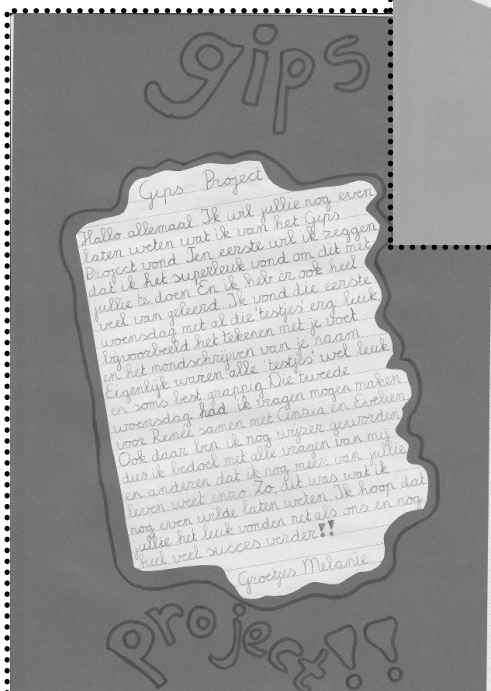 gips
Gips Project
Hallo allemaal. Ik wil jullie nog even
laten weten wat ik van het Gips
Project vond. Ten eerste wil ik zeggen
dat ik het superleuk vond om dit met
jullie te doen. En ik heb er ook heel
veel van geleerd. Ik vond die eerste
woensdag met al die 'testjes' erg leuk,
bijvoorbeeld het tekenen met je voet
en het mondschrijven van je naam.
Eigenlijk waren alle 'testjes' wel leuk
en soms best grappig. Die tweede
woensdag had ik vragen mogen maken
voor Renee samen met Amria en Evelien.
Ook daar ben ik nog wijzer geworden
dus ik bedoel met alle vragen van mij
en anderen dat ik nog meer van jullie
leven weet enzo. Zo, dit was wat ik
nog even wilde laten weten. Ik hoop dat
jullie het leuk vonden net als ons en nog
heel veel succes verder!!
Groetjes Melanie
project!!